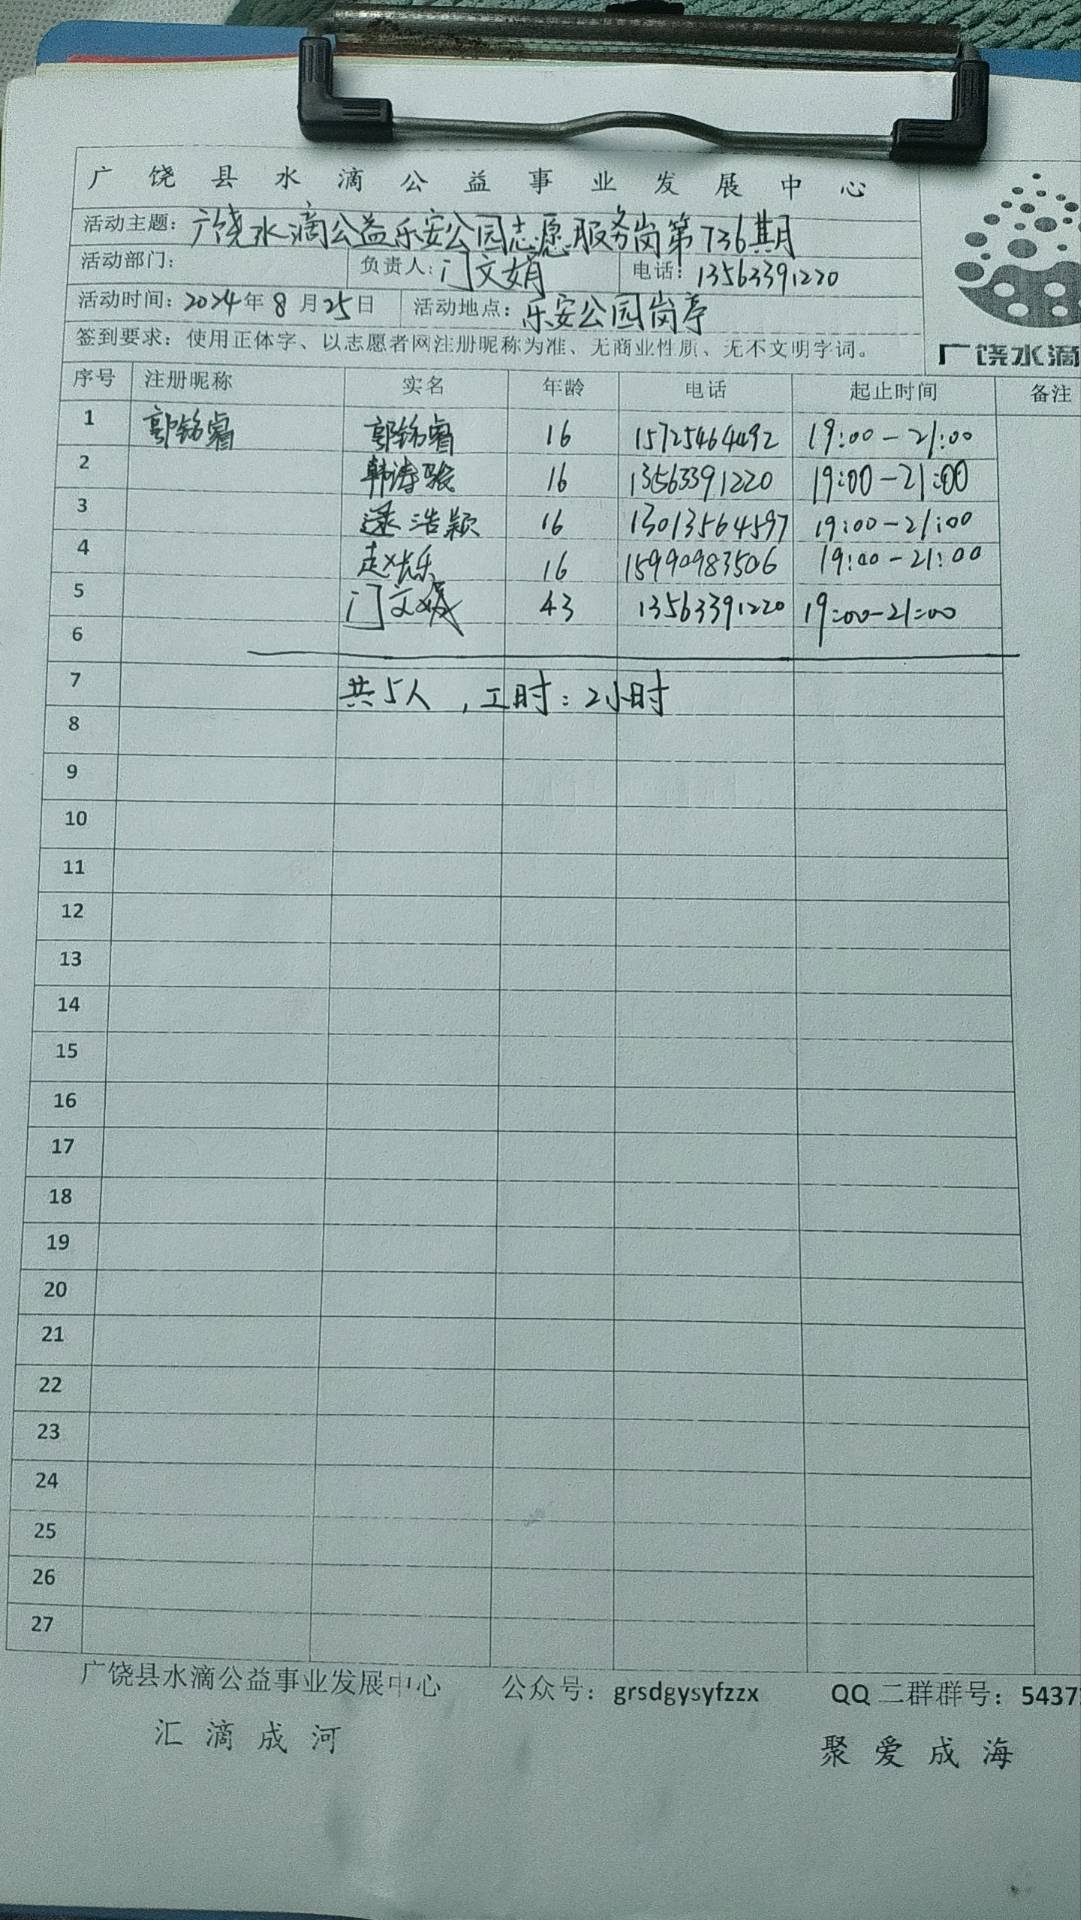 广饶县水滴公益事业发展中心
活动主题：广饶水滴公益乐安公园志愿服务岗第736期
活动部门： 负责人：门文娟 电话：13563391220
活动时间：2024年8月25日 活动地点：乐安公园岗亭
签到要求：使用正体字、以志愿者网注册昵称为准、无商业性质、无不文明字词。
广饶水滴
序号 注册昵称 实名 年龄 电话 起止时间 备注
1 郭铭睿 郭铭睿 16 15725464492 19:00-21:00
2 韩涛骏 16 13563391220 19:00-21:00
3 浩颖 16 13013564597 19:00-21:00
4 乐 16 15990983506 19:00-21:00
5 门文娟 43 13563391220 19:00-21:00
6
7 共5人，工时：2小时
8
9
10
11
12
13
14
15
16
17
18
19
20
21
22
23
24
25
26
27
广饶县水滴公益事业发展中心 公众号：grsdgysyfzzx QQ二群群号：5437
汇滴成河 聚爱成海